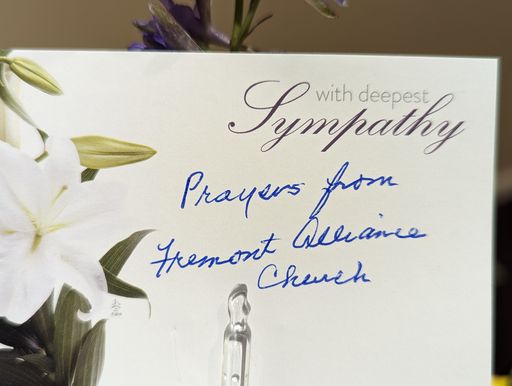 with deepest
Sympathy
Prayers from
Fremont Alliance
Church